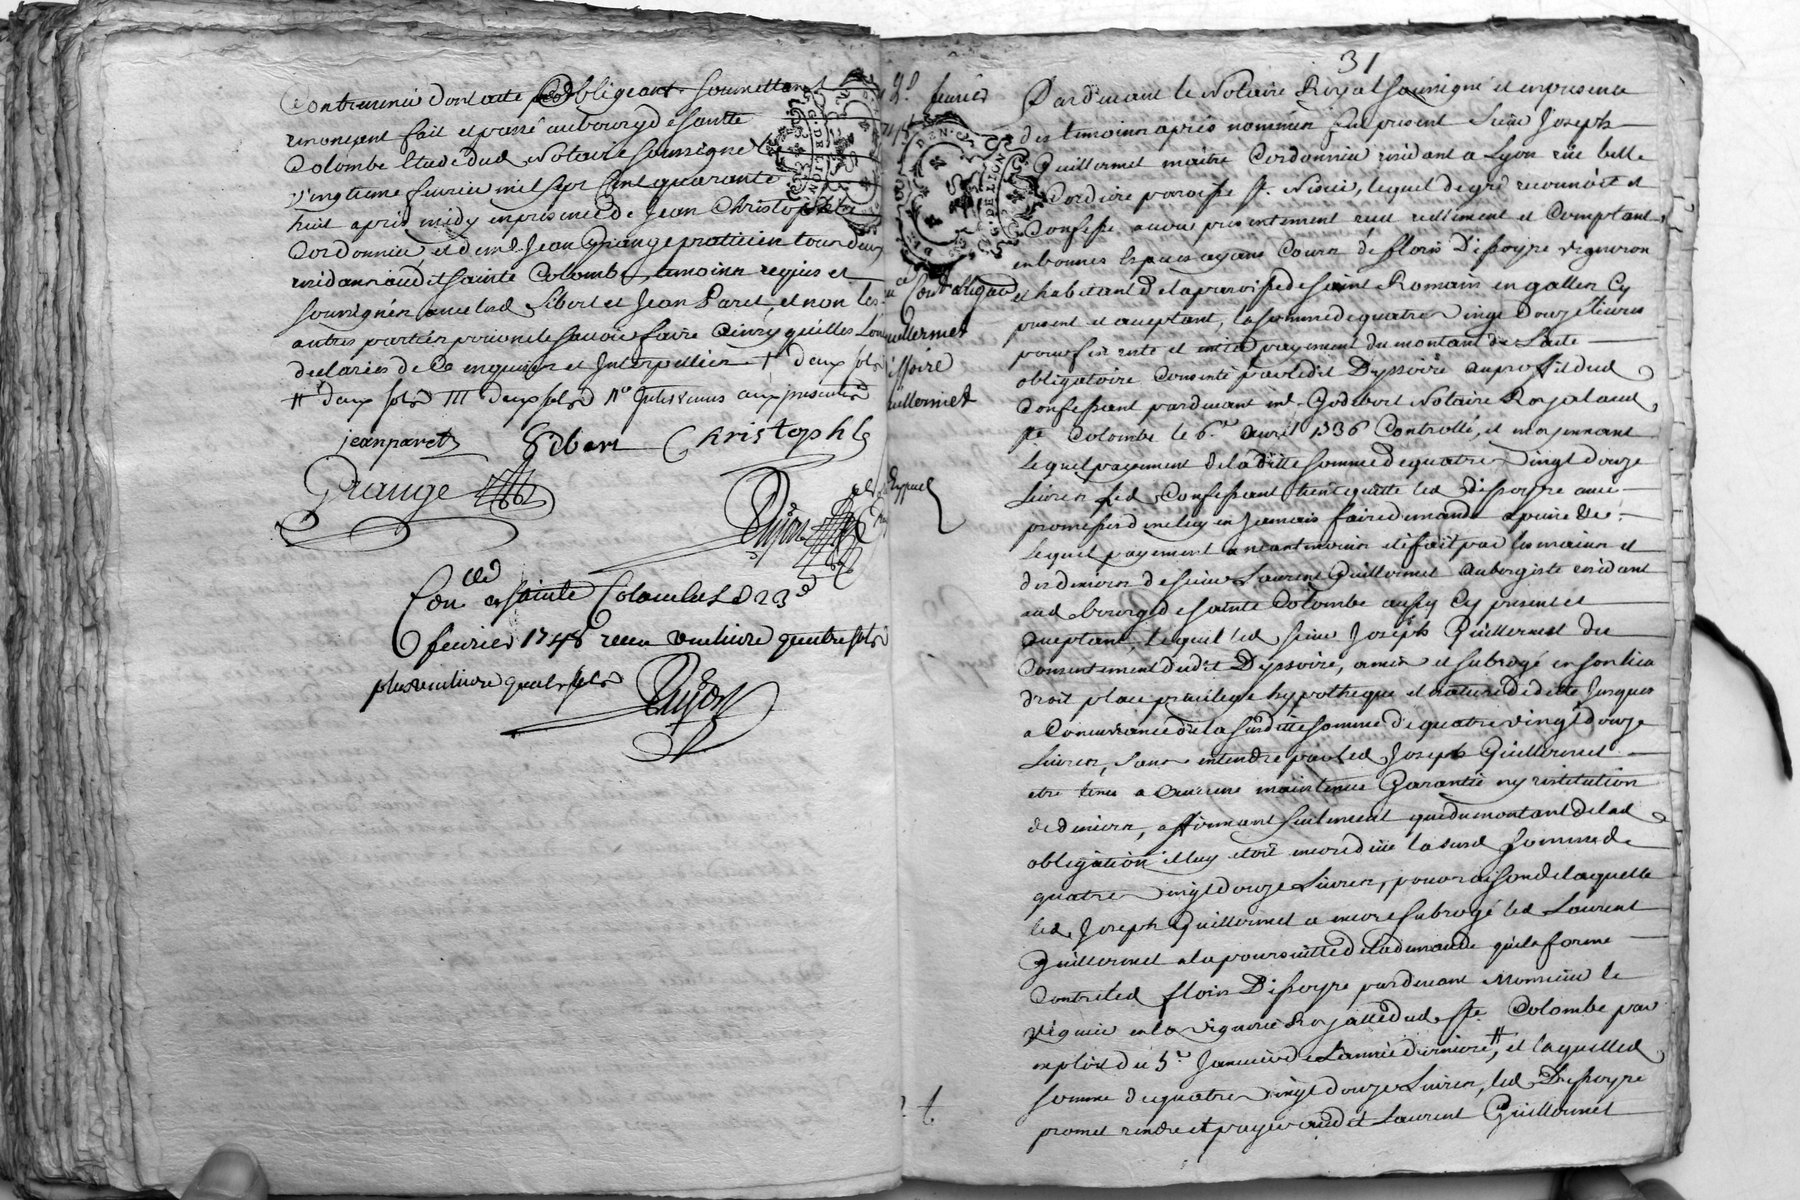 Contrevenir dont acte obligeant soumettant
renonçent fait et passé au bourg de sainte
Colombe Etude dud Notaire soussigné le
vingtieme fevrier mil sept cent quarante
huit après midy en presence de Jean Christophle
Cordonnier et de me Jean Grange praticien tous deux
residans audit sainte Colombe temoins requis et
soussignés avec led Sibert et Jean Paret, et non les
autres parties pour ne le savoir faire ainsy qu'elles l'ont
declarées de ce enquises et Interpellées † deux sols
deux sols deux sols
jean paret Sibert Christophle
Grange
Dujon
Con lle a sainte Colombe le 23e
fevrier 1748 receu une livre quatre sols
plus une livre quatre sols
Dujon
31
fevrier
Pardevant le Notaire Royal soussigné et en presence
des temoins après nommés fut present sieur Joseph
Guillermet maitre Cordonnier residant a Lyon rüe belle
Cordiere paroisse st. Nisier, lequel de gré reconnoit et
Confesse avoir presentement receu reellement et Comptant
en bonnes Especes ayans Cours de floris Dissoyre vigneron
et habitant de la paroisse de saint Romain en gallen Cy
present et aceptant, la somme de quatre vingt douze livres
pour fin reste et entier payement du montant de L'acte
obligatoire Consenti par ledit Dyssoire au proffit dud
Confessant pardevant me Godivert Notaire Royal aud
ste Colombe le 6e avril 1736 Controllé, et moyennant
Lequel payement de la ditte somme de quatre vingt douze
Livres led Confessant tient quitte led Dissoyre avec
promesses de ne luy en Jamais faire demande a peine &c.
Lequel payement a neantmoins été fait par les mains et
des deniers de sieur Laurent Guillermet aubergiste residant
aud bourg de sainte Colombe aussy Cy present et
aceptant, lequel led sieur Joseph Guillermet du
Consentement dudit Dyssoire, a mis et subrogé en son lieu
droit place privilege hypotheque et nature de dette Jusques
a Concurrance de la susditte somme de quatre vingt douze
Livres, sans entendre par led Joseph Guillermet
etre tenu a aucune maintenüe Garantie ny restitution
de deniers, affirmant seulement que du montant de lad
obligation il luy etoit encore düe la susd somme de
quatre vingt douze Livres, pour raison de laquelle
led Joseph Guillermet a encore subrogé led Laurent
Guillermet a la poursuitte de la demande qu'il a formé
Contre led floris Dissoyre pardevant Monsieur le
viguier en la viguerie Royalle dud ste Colombe par
exploit du 5e Janvier de L'année derniere, et laquelle
somme de quatre vingt douze Livres, led Dissoyre
promet rendre et payer audit Laurent Guillermet
Guillermet
issoire
Guillermet